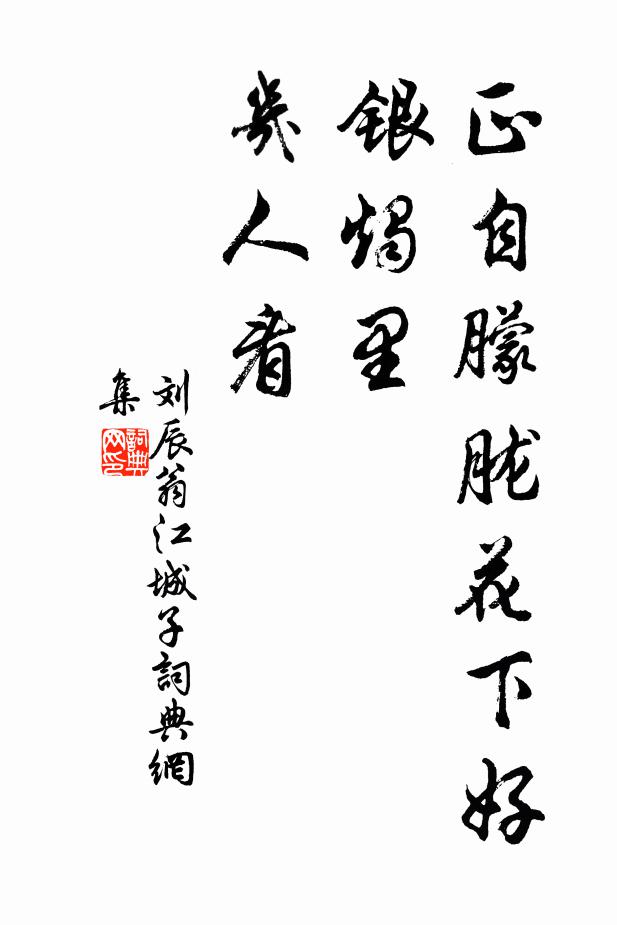 正自朦胧花下好
银烛里
几人看
刘辰翁江城子詞典網
集
詞典
网印